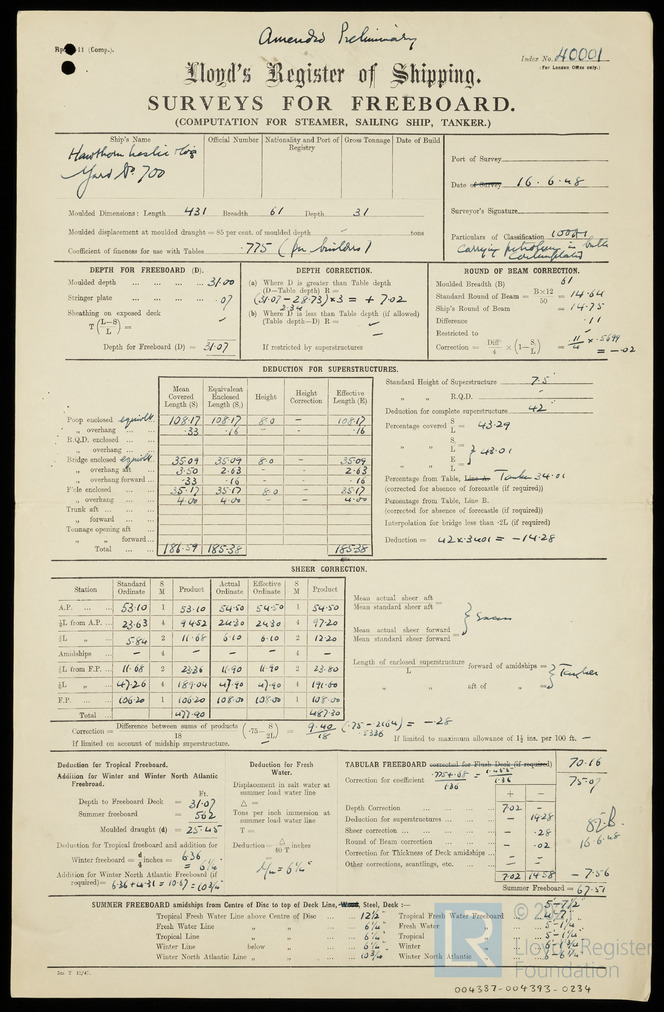 Amended Preliminary
(Comp.).
Index No. 40001
(For London Office only.)
Lloyd's Register of Shipping.
SURVEYS FOR FREEBOARD.
(COMPUTATION FOR STEAMER, SAILING SHIP, TANKER.)
Ship's Name
Official Number
Nationality and Port of Registry
Gross Tonnage
Date of Build
Hawthorn Leslie
Yard No 700
Port of Survey
Date of Survey 16.6.48
Surveyor's Signature
Particulars of Classification 100A1
Carrying petroleum in bulk
contemplated
Moulded Dimensions: Length 431 Breadth 61 Depth 31
Moulded displacement at moulded draught = 85 per cent. of moulded depth tons
Coefficient of fineness for use with Tables .775 (for builders)
DEPTH FOR FREEBOARD (D).
Moulded depth 31.00
Stringer plate .07
Sheathing on exposed deck
T (L-S/L) =
Depth for Freeboard (D) = 31.07
DEPTH CORRECTION.
(a) Where D is greater than Table depth
(D-Table depth) R =
(31.07 - 28.73) × 3 = + 7.02
2.34
(b) Where D is less than Table depth (if allowed)
(Table depth-D) R =
If restricted by superstructures
ROUND OF BEAM CORRECTION.
Moulded Breadth (B) 61
Standard Round of Beam = B×12/50 = 14.64
Ship's Round of Beam = 14.75
Difference .11
Restricted to
Correction = Diff/4 × (1-S/L) = .11/4 × .5699
= -.02
DEDUCTION FOR SUPERSTRUCTURES.
Mean Covered Length (S)
Equivalent Enclosed Length (S₁)
Height
Height Correction
Effective Length (E)
Poop enclosed equivlt. 108.17 108.17 8.0 - 108.17
" overhang .33 .16 - - .16
R.Q.D. enclosed
" overhang
Bridge enclosed equivlt. 35.09 35.09 8.0 - 35.09
" overhang aft 3.50 2.63 - - 2.63
" overhang forward .33 .16 - - .16
F'cle enclosed 35.17 35.17 8.0 - 35.17
" overhang 4.00 4.00 - - 4.00
Trunk aft
" forward
Tonnage opening aft
" " forward
Total 186.59 185.38 185.38
Standard Height of Superstructure 7.5
" " R.Q.D. -
Deduction for complete superstructure 42
Percentage covered S/L = 43.29
" " S₁/L =
" " E/L = } 43.01
Percentage from Table, Line A. Tanker 34.01
(corrected for absence of forecastle (if required))
Percentage from Table, Line B.
(corrected for absence of forecastle (if required))
Interpolation for bridge less than ·2L (if required)
Deduction = 42 × .3401 = -14.28
SHEER CORRECTION.
Station
Standard Ordinate
S M
Product
Actual Ordinate
Effective Ordinate
S M
Product
A.P. 53.10 1 53.10 54.50 54.50 1 54.50
⅙L from A.P. 23.63 4 94.52 24.30 24.30 4 97.20
⅓L " 5.84 2 11.68 6.10 6.10 2 12.20
Amidships - 4 - - - 4 -
⅓L from F.P. 11.68 2 23.36 11.90 11.90 2 23.80
⅙L " 47.26 4 189.04 47.90 47.90 4 191.60
F.P. 106.20 1 106.20 108.00 108.00 1 108.00
Total 477.90 487.30
Mean actual sheer aft =
Mean standard sheer aft
Mean actual sheer forward =
Mean standard sheer forward
} Excess
Length of enclosed superstructure forward of amidships =
L
" " aft of " =
} Tanker
Correction = Difference between sums of products/18 (·75 - S/2L) = 9.40/18 (.75 - .2164) = -.28
.5336
If limited on account of midship superstructure.
If limited to maximum allowance of 1½ ins. per 100 ft. -
Deduction for Tropical Freeboard.
Addition for Winter and Winter North Atlantic Freeboard.
Ft.
Depth to Freeboard Deck = 31.07
Summer freeboard = 5.62
Moulded draught (d) = 25.45
Deduction for Tropical freeboard and addition for
Winter freeboard = d/4 inches = 6.36
= 6¼"
Addition for Winter North Atlantic Freeboard (if
required) = 6.36 + 4.31 = 10.67 = 10¾"
Deduction for Fresh Water.
Displacement in salt water at summer load water line
Δ =
Tons per inch immersion at summer load water line
T =
Deduction = Δ/40 T inches
= 6¼"
TABULAR FREEBOARD corrected for Flush Deck (if required) 70.16
Correction for coefficient .775+.68/1.36 = 1.455/1.36 75.07
+ -
Depth Correction 7.02 -
Deduction for superstructures - 14.28
Sheer correction - .28
Round of Beam correction - .02
Correction for Thickness of Deck amidships - -
Other corrections, scantlings, etc. - -
7.02 14.58 - 7.56
Summer Freeboard = 67.51
16.6.48
SUMMER FREEBOARD amidships from Centre of Disc to top of Deck Line, Wood, Steel, Deck :- 5'-7½"
Tropical Fresh Water Line above Centre of Disc 12½"
Fresh Water Line " " 6¼"
Tropical Line " " 6¼"
Winter Line below " 6¼"
Winter North Atlantic Line " " 10¾"
Tropical Fresh Water Freeboard 4'-7"
Fresh Water " 5-1¼"
Tropical " 5-1¼"
Winter " 6-1¾"
Winter North Atlantic " 6-6¼"
Lloyd's Register
Foundation
004387-004393-0234